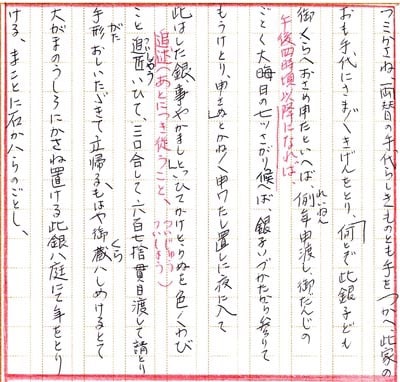 つミかさね、両替の手代らしきものとも手をつかへ、此家の
おも手代にさま〲きげんをとり、「何とぞ此銀子ども
御くらへおさめ申たといへば、例年申渡し、御ぞんじの
れいねん
午後四時頃以降になれば、
ごとく大晦日の七ツさがり候へば、銀子いづかたから参りて
もうけとり、申さぬとかね〲申わたし置しに夜に入て
此はした銀、事やかましといひてかけとりぬを色〱わび
(あとにつき従うこと、
こと追従いひて、三口合して六百七拾貫目渡して請とり
がた
手形おしいたゞきて立帰るもはや御蔵ハしめけるとて
くら
大がまのうしろにかさね置ける此銀ハ庭にて年をとり
ける、まことに石かハらのごとし、